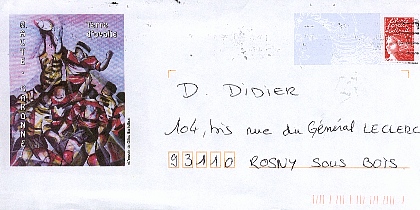 HAUTE-GARONNE
Terre d'ovalie
D. DIDIER
104, bis rue du Général LECLERC
93110 ROSNY SOUS BOIS